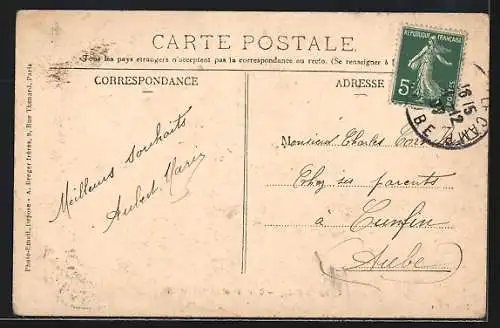 CARTE POSTALE
Tous les pays étrangers n'acceptent pas la correspondance au recto. (Se renseigner à l
CORRESPONDANCE
ADRESSE
REPUBLIQUE FRANÇAISE
5
16 15
Meilleurs souhaits
Aubert Marie
Monsieur Charles
Chez ses parents
à Cunfin
(Aube)
Photo-Email, Dreger frères, Rue Thénard, Paris